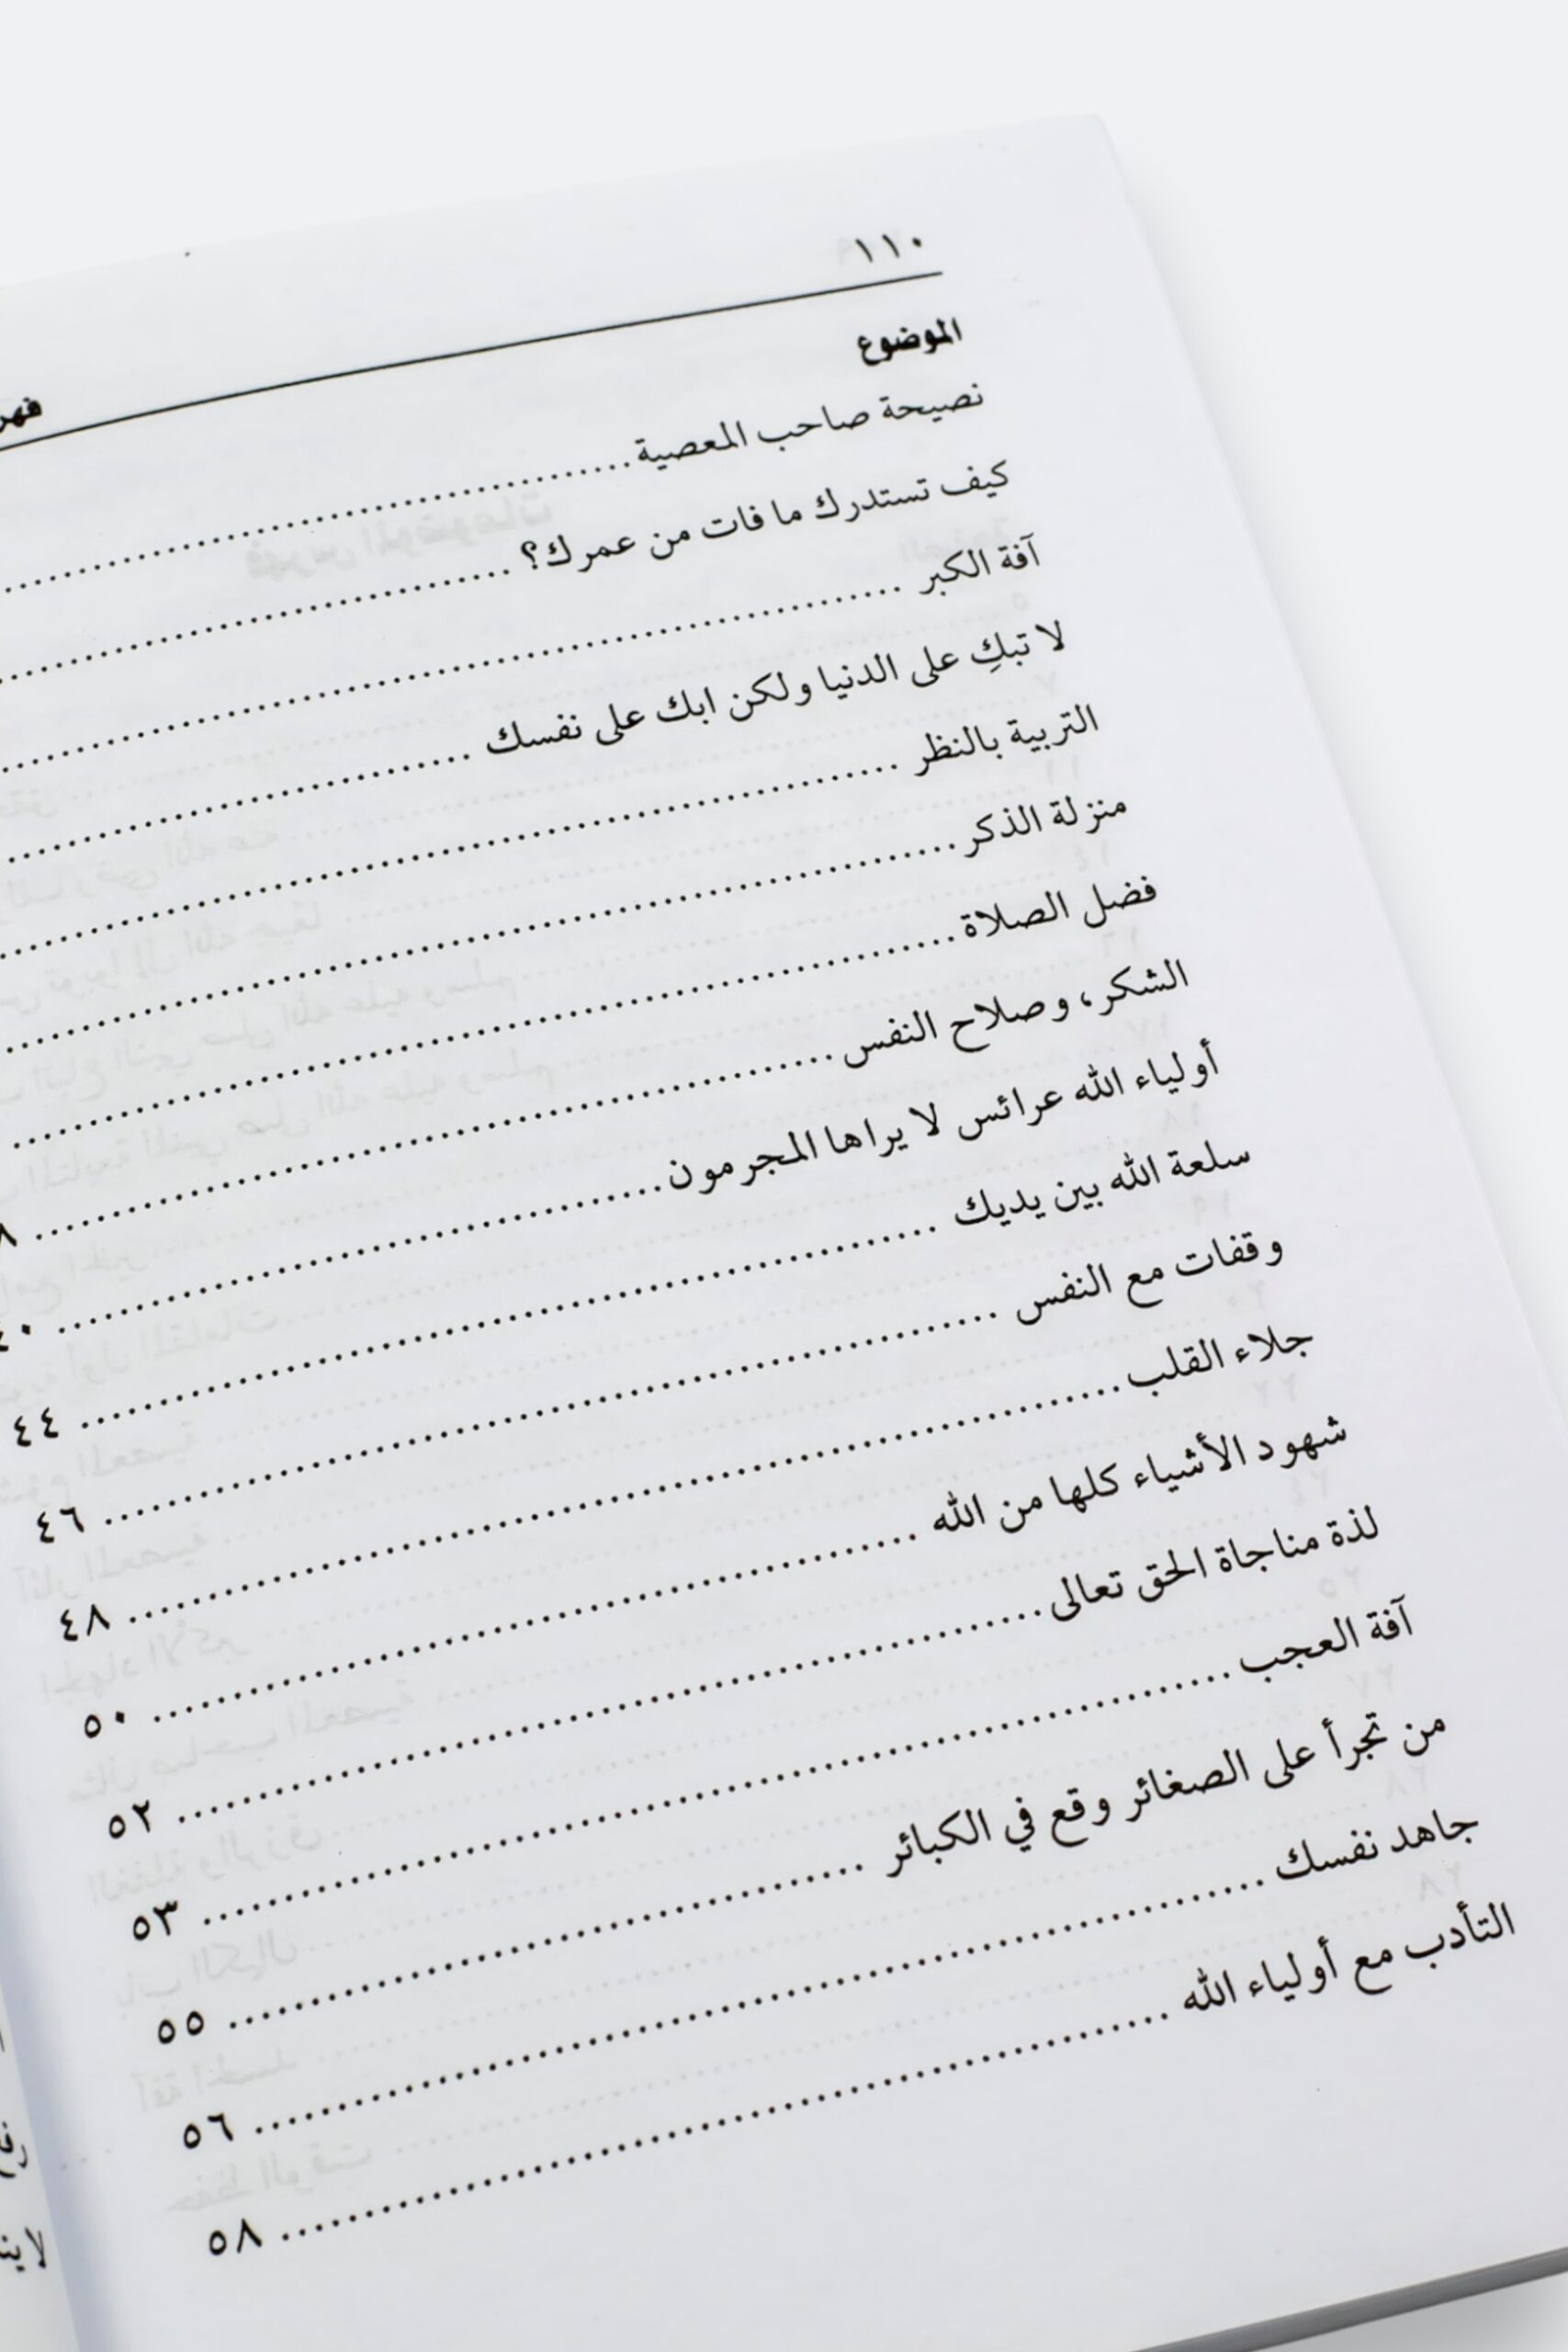 ١١٠
الموضوع
نصيحة صاحب المعصية
كيف تستدرك ما فات من عمرك؟
آفة الكبر
لا تبكِ على الدنيا ولكن ابك على نفسك
التربية بالنظر
منزلة الذكر
فضل الصلاة
الشكر، وصلاح النفس
أولياء الله عرائس لا يراها المجرمون ٤٠
سلعة الله بين يديك ٤٤
وقفات مع النفس ٤٦
جلاء القلب ٤٨
شهود الأشياء كلها من الله ٥٠
لذة مناجاة الحق تعالى ٥٢
آفة العجب ٥٣
من تجرأ على الصغائر وقع في الكبائر ٥٥
جاهد نفسك ٥٦
التأدب مع أولياء الله ٥٨